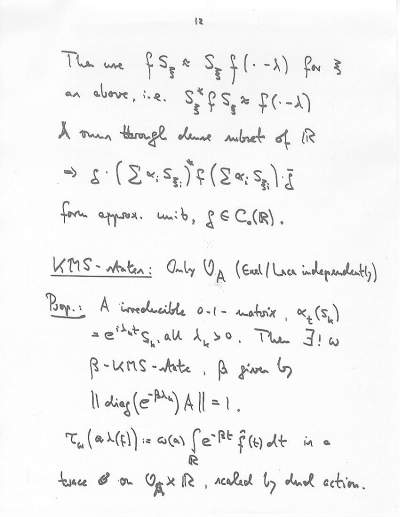 12
Then use f S_ξ ≈ S_ξ f(· - λ) for ξ
as above, i.e. S_ξ^* f S_ξ ≈ f(· - λ)
λ runs through dense subset of ℝ
⇒ g · (∑ α_i S_{ξ_i})^* f (∑ α_i S_{ξ_i}) · ḡ
form approx. unit, g ∈ C_0(ℝ).
KMS-states: Only O_A (Exel/Laca independently)
Prop.: A irreducible 0-1-matrix, α_t(S_k)
= e^{iλ_k t} S_k, all λ_k > 0. Then ∃! ω
β-KMS-state, β given by
|| diag(e^{-βλ_k}) A || = 1.
τ_ω(a λ(f)) := ω(a) ∫_ℝ e^{-βt} f̂(t) dt is a
trace on O_A ⋊ ℝ, scaled by dual action.